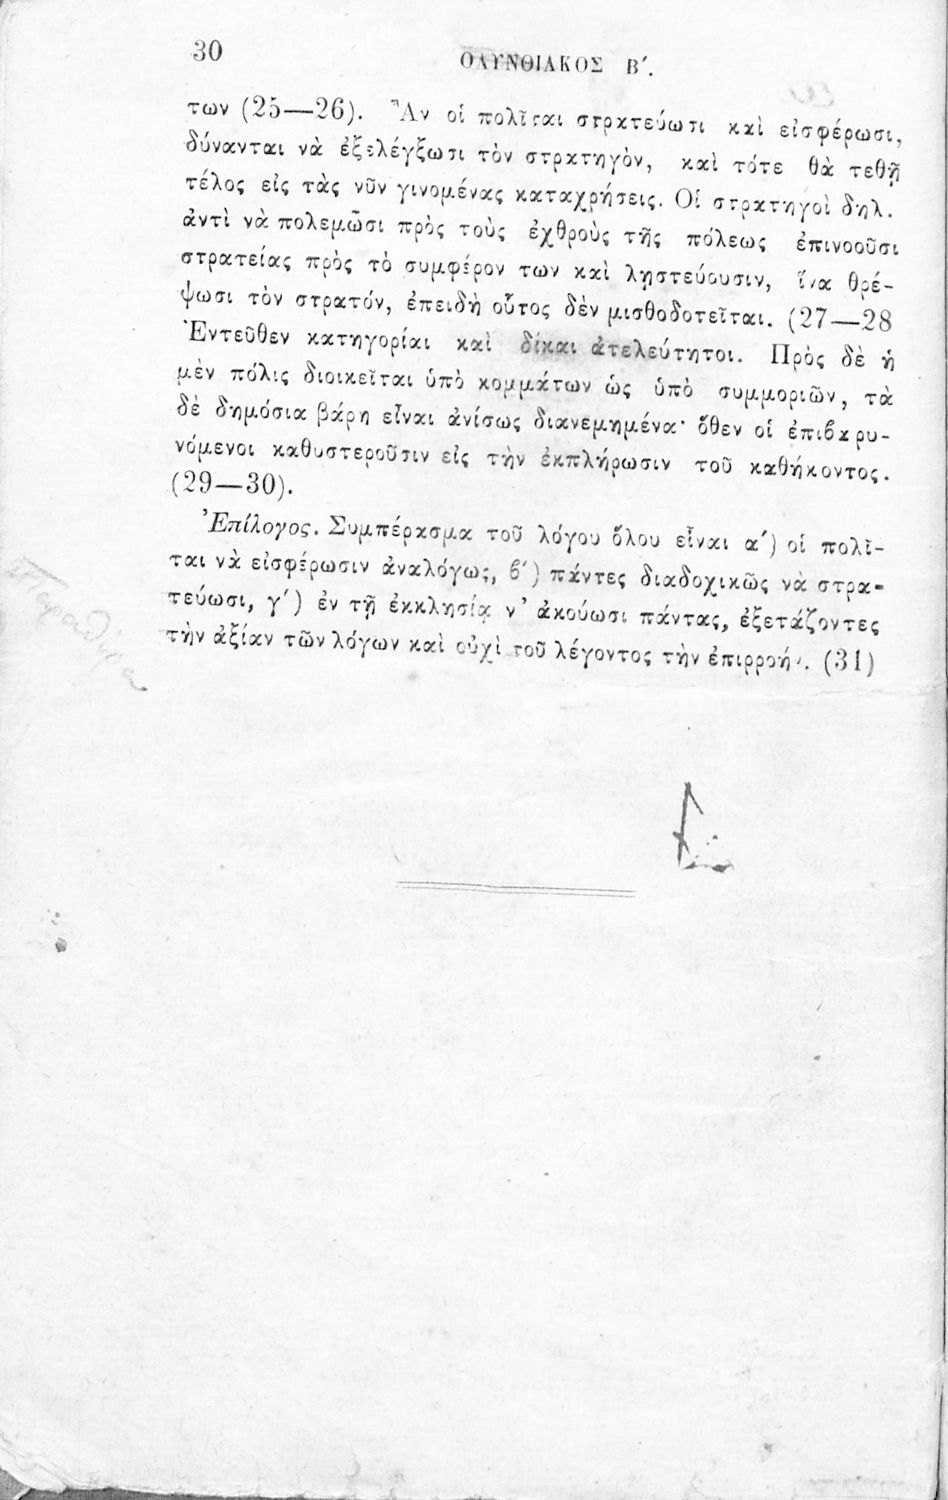 30
ΟΛΥΝΘΙΑΚΟΣ Β΄.
των (25—26). Ἂν οἱ πολῖται στρατεύωσι καὶ εἰσφέρωσι,
δύνανται νὰ ἐξελέγξωσι τὸν στρατηγὸν, καὶ τότε θὰ τεθῇ
τέλος εἰς τὰς νῦν γινομένας καταχρήσεις. Οἱ στρατηγοὶ δηλ.
ἀντὶ νὰ πολεμῶσι πρὸς τοὺς ἐχθροὺς τῆς πόλεως ἐπινοοῦσι
στρατείας πρὸς τὸ συμφέρον των καὶ λῃστεύουσιν, ἵνα θρέ-
ψωσι τὸν στρατόν, ἐπειδὴ οὗτος δὲν μισθοδοτεῖται. (27—28
Ἐντεῦθεν κατηγορίαι καὶ δίκαι ἀτελεύτητοι. Πρὸς δὲ ἡ
μὲν πόλις διοικεῖται ὑπὸ κομμάτων ὡς ὑπὸ συμμοριῶν, τὰ
δὲ δημόσια βάρη εἶναι ἀνίσως διανεμημένα· ὅθεν οἱ ἐπιβαρυ-
νόμενοι καθυστεροῦσιν εἰς τὴν ἐκπλήρωσιν τοῦ καθήκοντος.
(29—30).
Ἐπίλογος. Συμπέρασμα τοῦ λόγου ὅλου εἶναι α΄) οἱ πολῖ-
ται νὰ εἰσφέρωσιν ἀναλόγως, β΄) πάντες διαδοχικῶς νὰ στρα-
τεύωσι, γ΄) ἐν τῇ ἐκκλησίᾳ ν’ ἀκούωσι πάντας, ἐξετάζοντες
τὴν ἀξίαν τῶν λόγων καὶ οὐχὶ τοῦ λέγοντος τὴν ἐπιρροήν. (31)